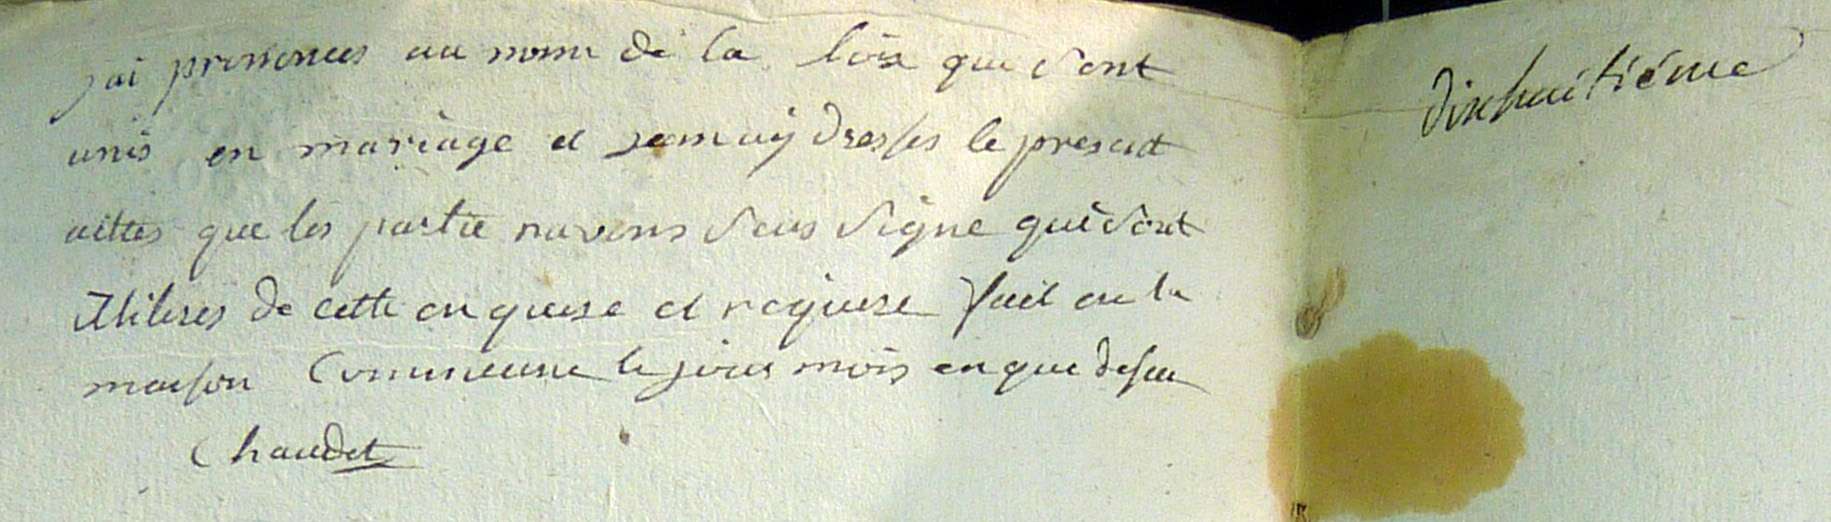 j'ai prononcés au nome de la loix que sont
unis en mariage et dresses le present
acttes que les partie navons sous signe qui sont
de cette enquise et requise fait en la
maison Commeune le jour mois en que desu
Chaudet
dixhuitiéme